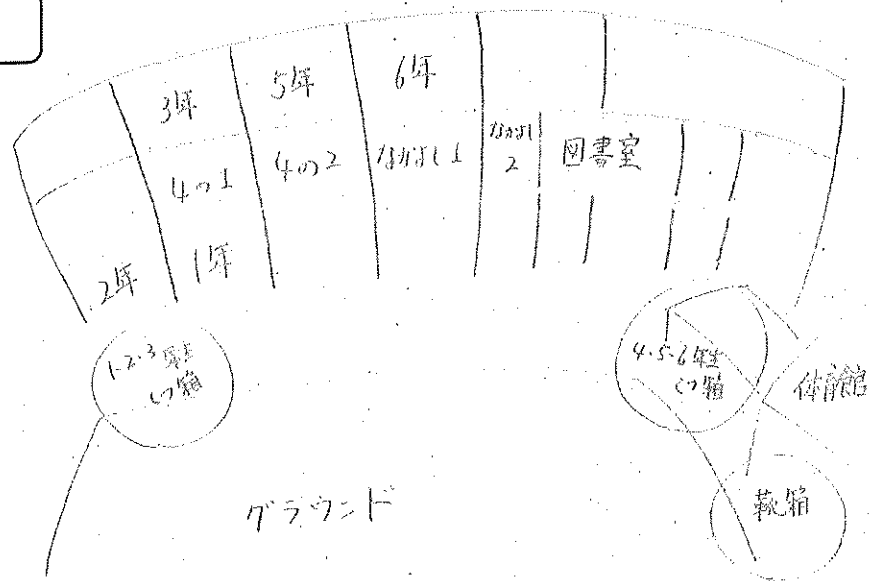 3年
5年
6年
4の1
4の2
なかよし1
なかよし
2
図書室
2年
1年
1・2・3年生
くつ箱
4・5・6年生
くつ箱
体育館
グラウンド
靴箱